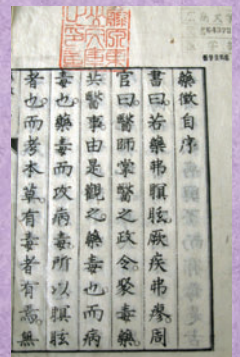 藥徵自序
書曰若藥弗瞑眩厥疾弗瘳周
官曰醫師掌醫之政令聚毒藥
共醫事由是觀之藥毒也而病
毒也藥毒而攻病毒所以瞑眩
者也而考本草有毒者有焉無